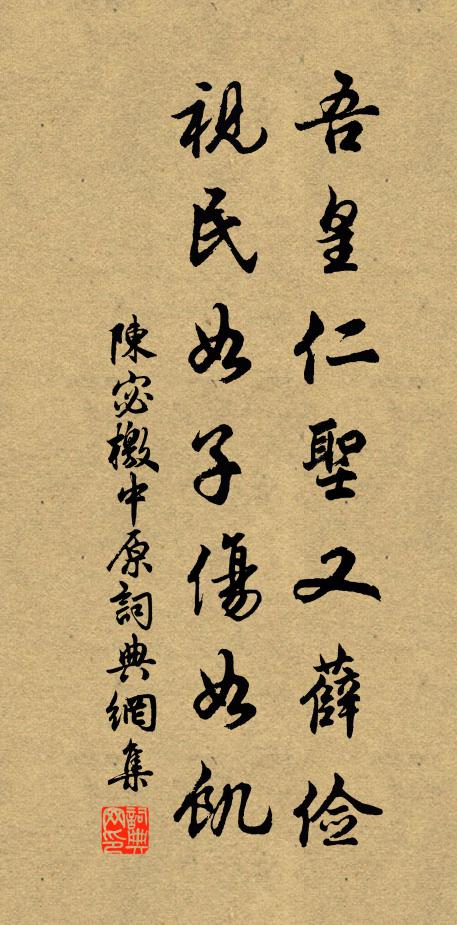 吾皇仁聖又薛俭
視民如子傷如飢
陳宓檄中原詞典網集
詞典网印